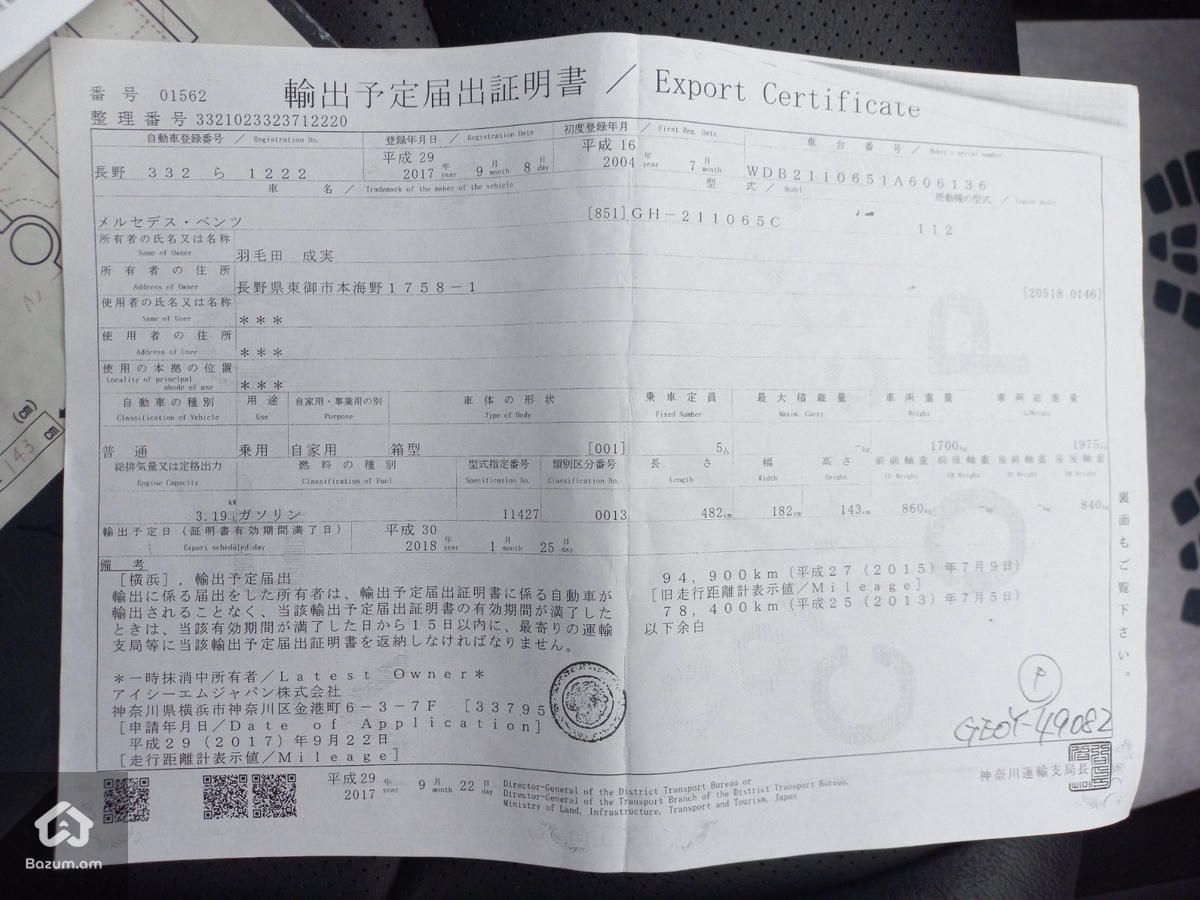 番号 01562
輸出予定届出証明書 / Export Certificate
整理番号 3321023323712220
自動車登録番号 / Registration No.
登録年月日 / Registration Date
初度登録年月 / First Reg. Date
車台番号 / Maker's serial number
長野 332 ら 1222
平成 29
2017 年 year 9 月 month 8 日 day
平成 16
2004 年 year 7 月 month
WDB2110651A606136
車名 / Trademark of the maker of the vehicle
型式 / Model
原動機の型式 / Engine Model
メルセデス・ベンツ
[851] GH-211065C
112
所有者の氏名又は名称
Name of Owner
羽毛田 成実
所有者の住所
Address of Owner
長野県東御市本海野1758-1
[20518 0146]
使用者の氏名又は名称
Name of User
***
使用者の住所
Address of User
***
使用の本拠の位置
Locality of principal abode of use
***
自動車の種別
Classification of Vehicle
用途
Use
自家用・事業用の別
Purpose
車体の形状
Type of Body
乗車定員
Fixed Number
最大積載量
Maxim. Carry
車両重量
Weight
車両総重量
G/Weight
普通
乗用
自家用
箱型
[001]
5人
-kg
1700kg
1975kg
総排気量又は定格出力
Engine Capacity
燃料の種別
Classification of Fuel
型式指定番号
Specification No.
類別区分番号
Classification No.
長さ
Length
幅
Width
高さ
Height
前前軸重
FF Weight
前後軸重
FR Weight
後前軸重
RF Weight
後後軸重
RR Weight
kW
3.19 L
ガソリン
11427
0013
482cm
182cm
143cm
860kg
-kg
-kg
840kg
輸出予定日(証明書有効期間満了日)
Export scheduled day
平成 30
2018 年 year 1 月 month 25 日 day
備考
[横浜],輸出予定届出
輸出に係る届出をした所有者は、輸出予定届出証明書に係る自動車が
輸出されることなく、当該輸出予定届出証明書の有効期間が満了した
ときは、当該有効期間が満了した日から15日以内に、最寄りの運輸
支局等に当該輸出予定届出証明書を返納しなければなりません。
*一時抹消中所有者/Latest Owner*
アイシーエムジャパン株式会社
神奈川県横浜市神奈川区金港町6-3-7F [33795
[申請年月日/Date of Application]
平成29(2017)年9月22日
[走行距離計表示値/Mileage]
94,900km(平成27(2015)年7月9日)
[旧走行距離計表示値/Mileage]
78,400km(平成25(2013)年7月5日)
以下余白
裏面もご覧下さい。
P
GEOY-49082
平成29
2017 年 year 9 月 month 22 日 day
Director-General of the District Transport Bureau or
Director-General of the Transport Branch of the District Transport Bureau.
Ministry of Land, Infrastructure, Transport and Tourism, Japan
神奈川運輸支局長
(cm)
143 cm
Bazum.am